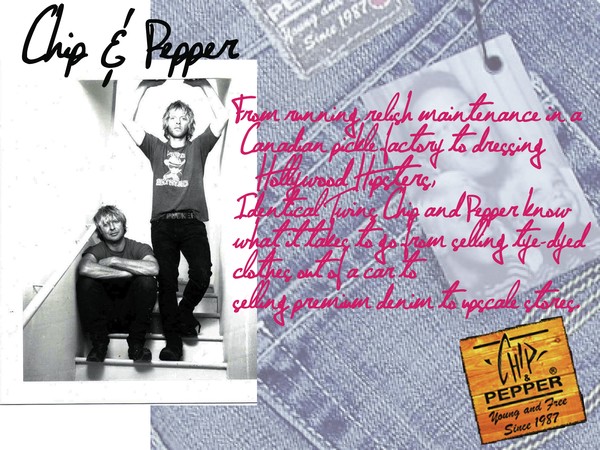 Chip & Pepper
Young and Free
Since 1987
From running relish maintenance in a
Canadian pickle factory to dressing
Hollywood Hipsters,
Identical Twins Chip and Pepper know
what it takes to go from selling tye-dyed
clothes out of a car to
selling premium denim to upscale stores.
CHIP
&
PEPPER®
Young and Free
Since 1987